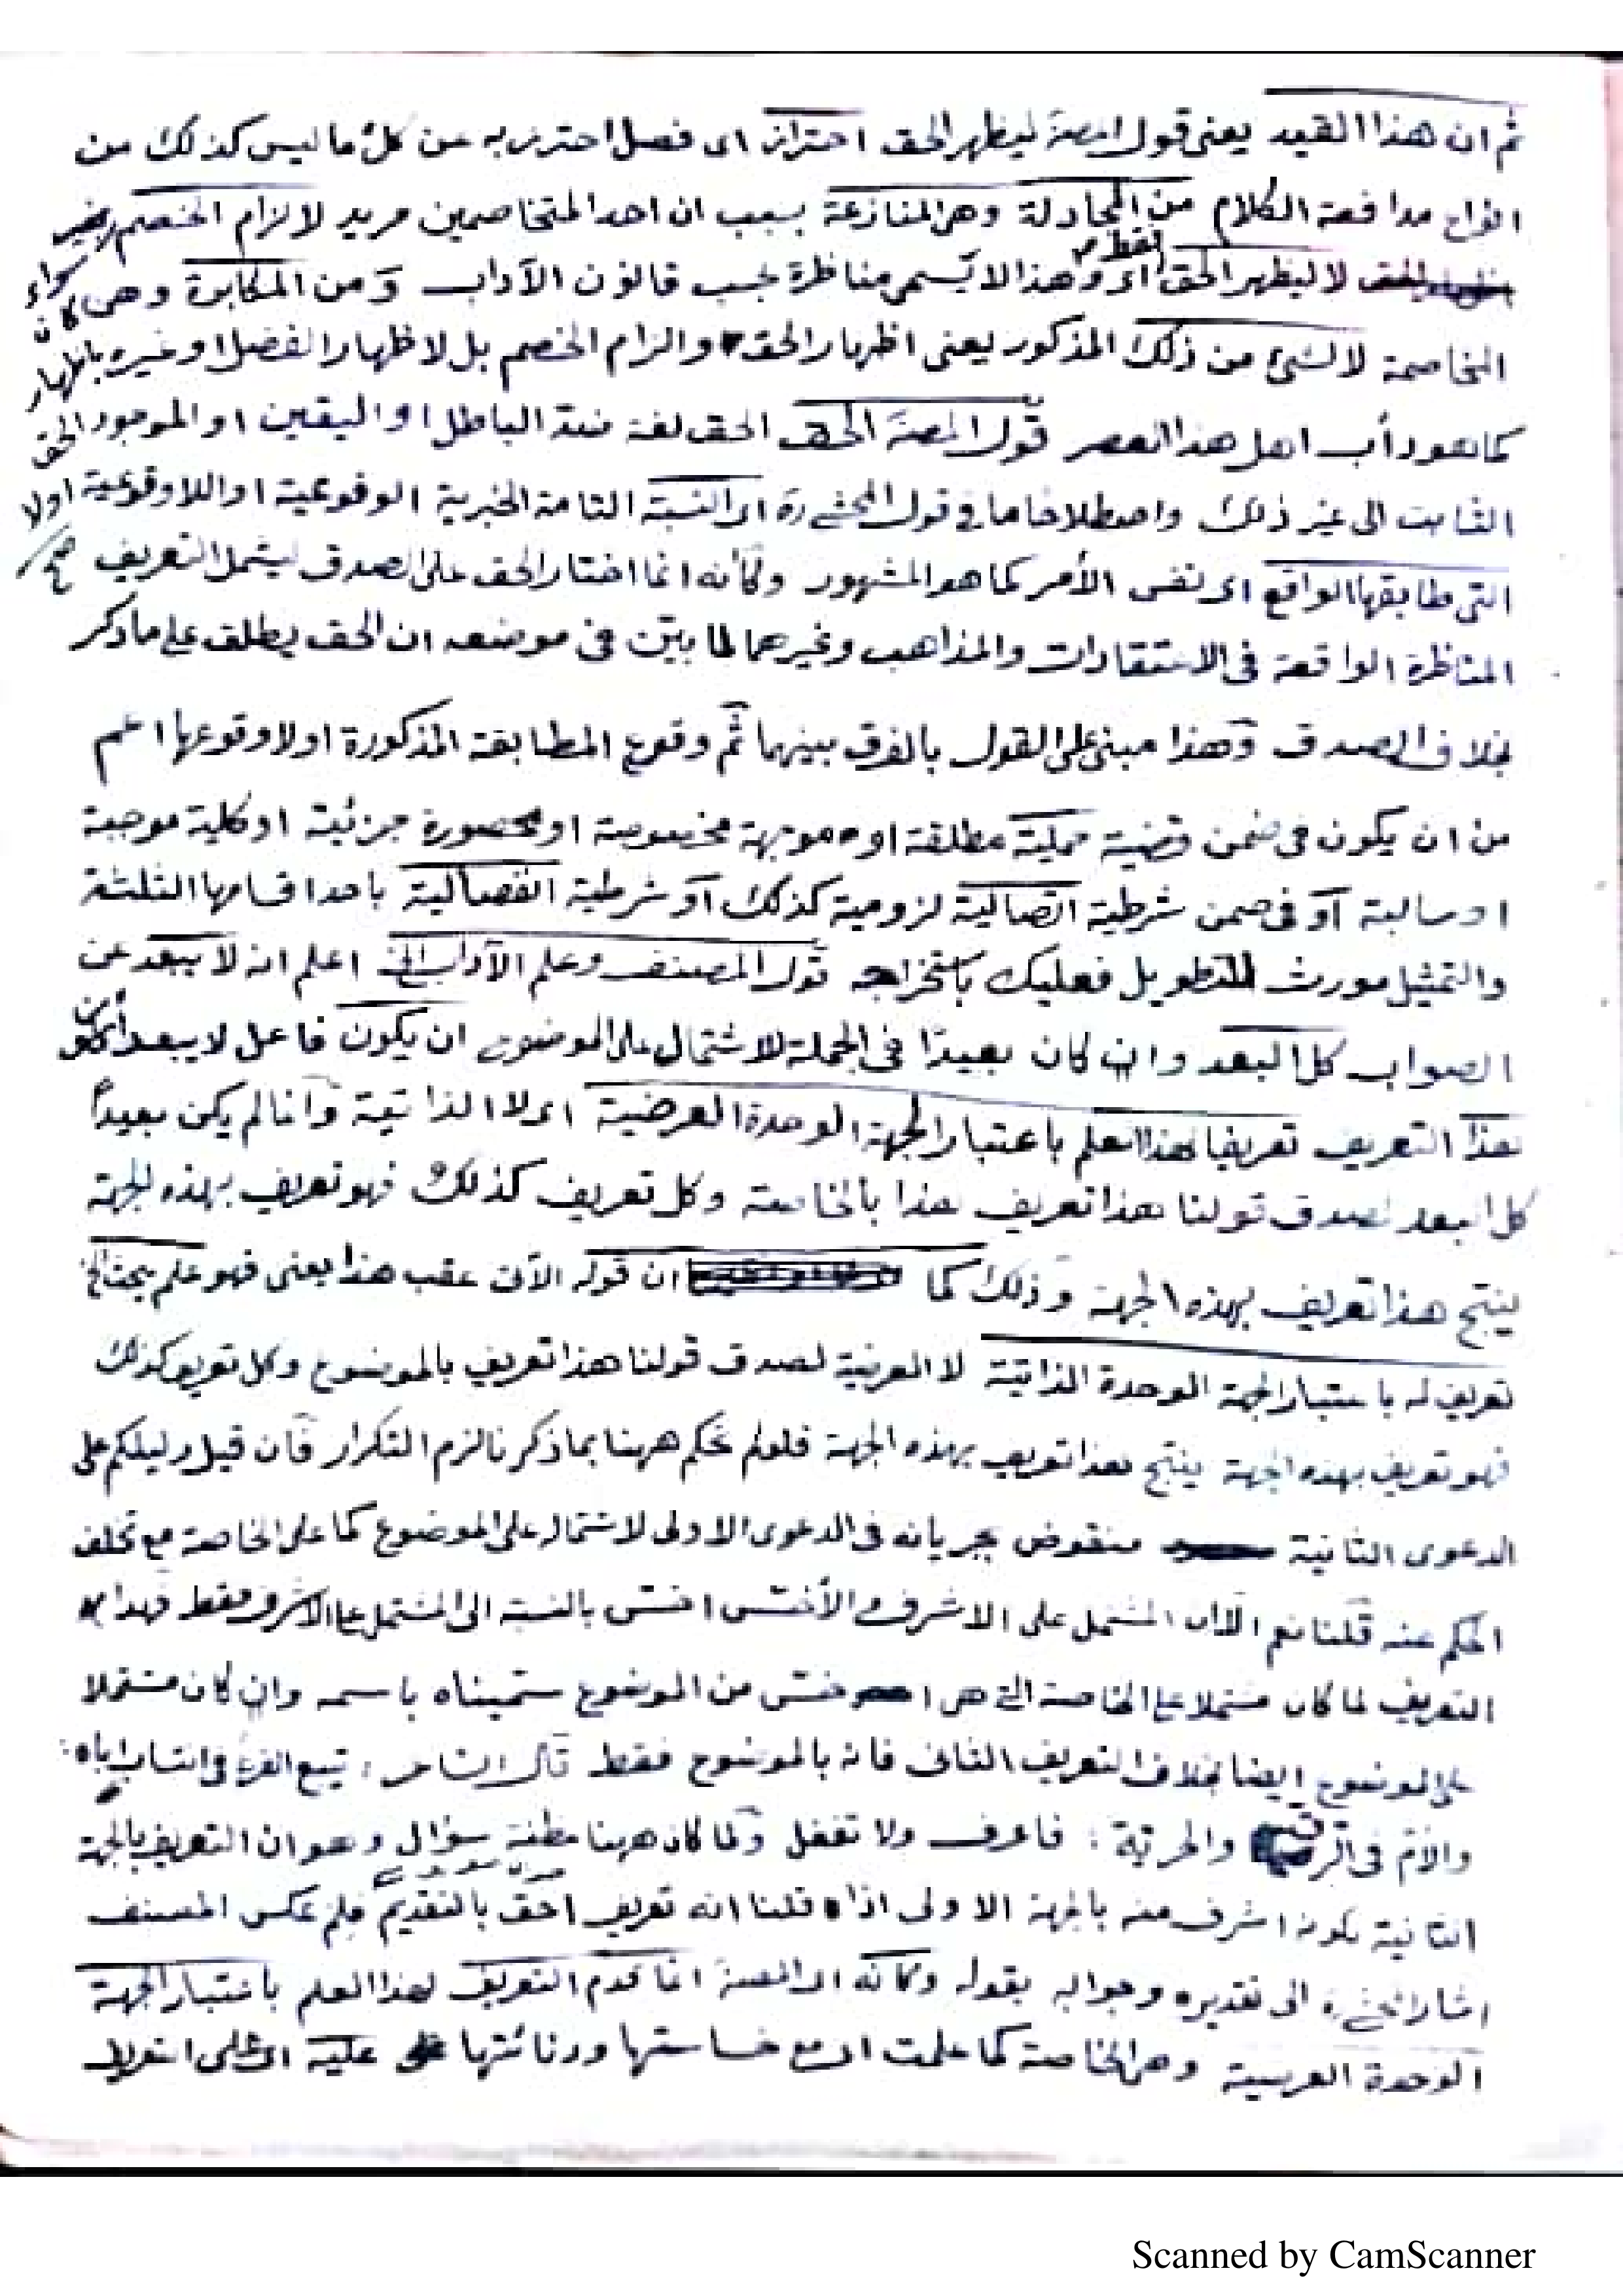 ثم ان هذا القيد يعنى قول المصنف ليظهر الحق احتراز اى فصل احترز به عن كل ما ليس كذلك من
انواع مدافعة الكلام من المجادلة وهى المنازعة بسبب ان احد المتخاصمين مريد لالزام الخصم
فقط لا ليظهر الحق اى وهذا لا يسمى مناظرة بحسب قانون الآداب ومن المكابرة وهى
سواء كان
المخاصمة لا لشئ من ذلك المذكور يعنى اظهار الحق والزام الخصم بل لاظهار الفضل او غيره
باظهار
كما هو دأب اهل هذا العصر قول المصنف الحق الحق لغة ضد الباطل او اليقين او الموجود
الحق
الثابت الى غير ذلك واصطلاحا ما فى قول المحشى ره اى النسبة التامة الخبرية الوقوعية او اللاوقوعية
اولا صح
التى طابقها الواقع اى نفس الأمر كما هو المشهور وكأنه انما اختار الحق على الصدق ليشمل التعريف
المناظرة الواقعة فى الاعتقادات والمذاهب وغيرهما لما بين فى موضعه ان الحق يطلق على ما ذكر
بخلاف الصدق وهذا مبنى على القول بالفرق بينهما ثم وقوع المطابقة المذكورة اولا وقوعها اعم
من ان يكون فى ضمن قضية حملية مطلقة او موجهة مخصوصة او محصورة جزئية او كلية موجبة
او سالبة او فى ضمن شرطية اتصالية لزومية كذلك او شرطية انفصالية باحد اقسامها الثلثة
والتمثيل مورث للتطويل فعليك باستخراجه قول المصنف وعلم الآداب الخ اعلم انه لا يبعد عن
الصواب كل البعد وان كان بعيدا فى الجملة للاشتمال على الموضوع ان يكون فاعل لا يبعد
هذا التعريف تعريفا لهذا العلم باعتبار الجهة الوحدة العرضية اى لا الذاتية وانما لم يكن بعيدا
كل البعد لصدق قولنا هذا تعريف هذا بالخاصة وكل تعريف كذلك فهو تعريف بهذه الجهة
ينتج هذا تعريف بهذه الجهة وذلك كما ان قوله الآتى عقب هذا يعنى فهو علم يبحث الخ
تعريف له باعتبار الجهة الوحدة الذاتية لا العرضية لصدق قولنا هذا تعريف بالموضوع وكل تعريف كذلك
فهو تعريف بهذه الجهة ينتج هذا تعريف بهذه الجهة فلو لم نحكم ههنا بما ذكرنا لزم التكرار فان قيل دليلكم على
الدعوى الثانية منقوض بجريانه فى الدعوى الاولى لاشتماله على الموضوع كما على الخاصة مع تخلف
الحكم عنه قلنا نعم الا ان المشتمل على الاشرف والأخس اخس بالنسبة الى المشتمل على الاشرف فقط فهذا
التعريف لما كان مشتملا على الخاصة التى هى اخس من الموضوع سميناه باسمه وان كان مشتملا
على الموضوع ايضا بخلاف التعريف الثانى فانه بالموضوع فقط قال الشاعر : تبع الفرع فى انتساب اباه :
والام فى الرقية والحرية : فاعرف ولا تغفل ولما كان ههنا مظنة سؤال وهو ان التعريف بالجهة
الثانية لكونه اشرف منه بالجهة الاولى اذا قلنا انه تعريف احق بالتقديم فلم عكس المصنف
اشار المحشى ره الى تقديره وجوابه بقوله وكأنه اى المصنف انما قدم التعريف لهذا العلم باعتبار الجهة
الوحدة العرضية وهى الخاصة كما علمت اى مع خساستها ودنائتها عليه اى على التعريف